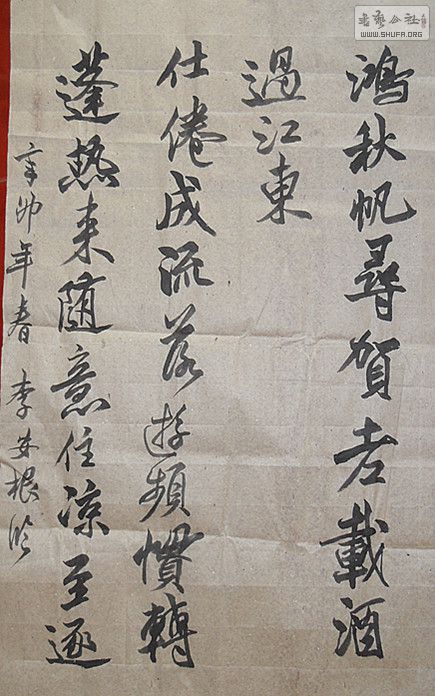 鴻秋帆尋賀老載酒
過江東
仕倦成流落遊頻慣轉
蓬熱来随意住凉至逐
辛卯年春 李安根
書藝公社
WWW.SHUFA.ORG